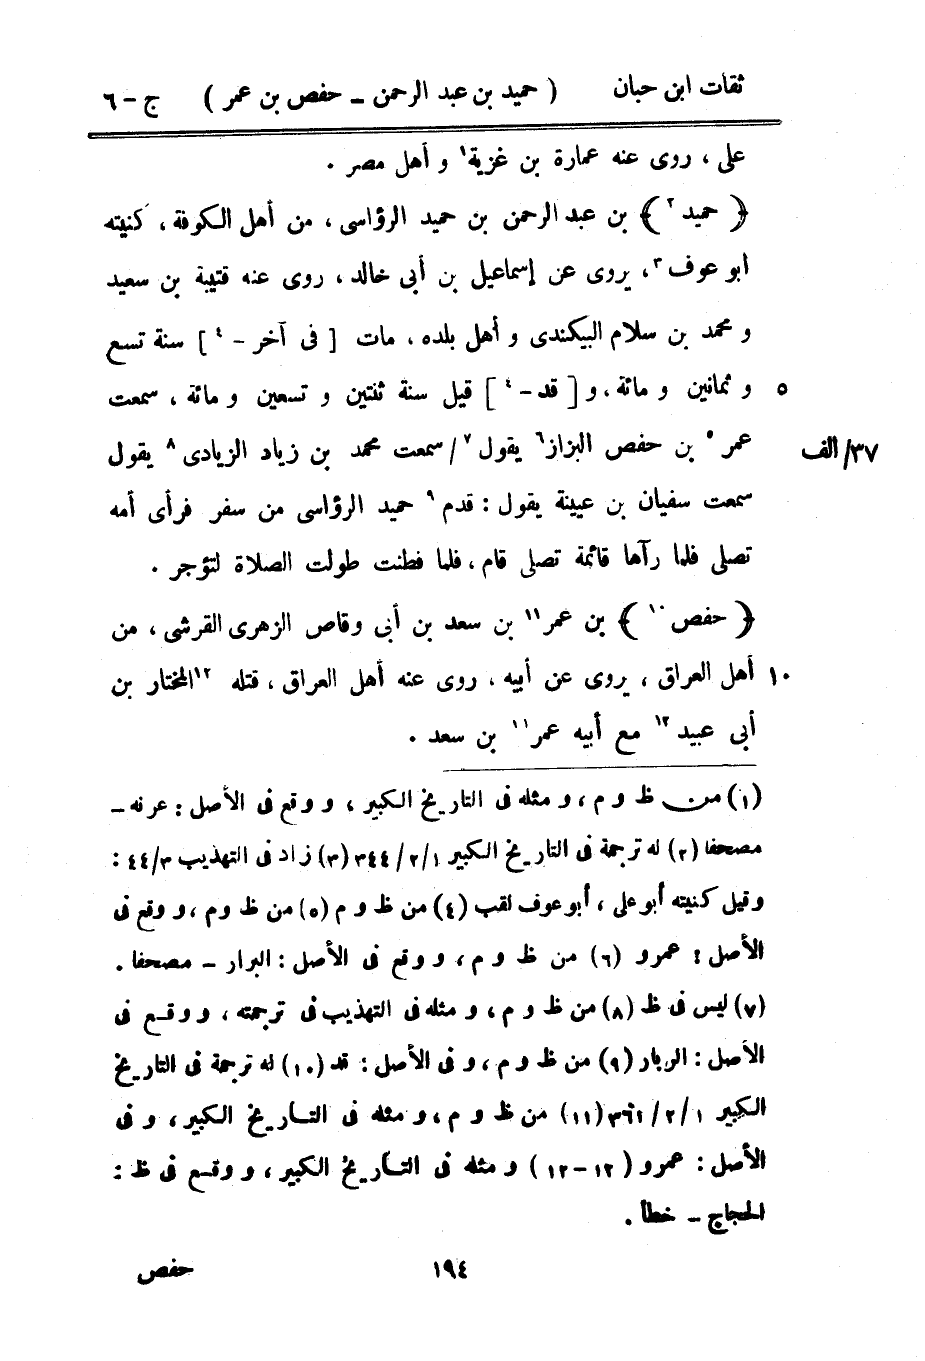 ثقات ابن حبان ( حميد بن عبد الرحمن ــ حفص بن عمر ) ج - ٦
على ، روى عنه عمارة بن غزية١ و أهل مصر .
﴿ حميد٢ ﴾ بن عبد الرحمن بن حميد الرؤاسى ، من أهل الكوفة ، كنيته
ابو عوف٣، يروى عن إسماعيل بن أبى خالد ، روى عنه قتيبة بن سعيد
و محمد بن سلام البيكندى و أهل بلده ، مات [ فى آخر - ٤ ] سنة تسع
٥ و ثمانين و مائة ، و [ قد - ٤ ] قيل سنة ثنتين و تسعين و مائة ، سمعت
عمر٥ بن حفص البزاز٦ يقول٧ / سمعت محمد بن زياد الزيادى٨ يقول ٣٧/ الف
سمعت سفيان بن عيينة يقول : قدم٩ حميد الرؤاسى من سفر فرأى أمه
تصلى فلما رآها قائمة تصلى قام ، فلما فطنت طولت الصلاة لتؤجر .
﴿ حفص١٠ ﴾ بن عمر١١ بن سعد بن أبى وقاص الزهرى القرشى ، من
١٠ أهل العراق ، يروى عن أبيه ، روى عنه أهل العراق ، قتله ١٢المختار بن
أبى عبيد١٢ مع أبيه عمر١١ بن سعد .
(١) من ظ و م ، و مثله فى التاريخ الكبير ، و وقع فى الأصل : عرنه ــ
مصحفا (٢) له ترجمة فى التاريخ الكبير ١/ ٢/ ٣٤٤ (٣) زاد فى التهذيب ٣/ ٤٤ :
وقيل كنيته أبو على ، أبو عوف لقب (٤) من ظ و م (٥) من ظ و م ، و وقع فى
الأصل : عمرو (٦) من ظ و م ، و وقع فى الأصل : البرار ــ مصحفا .
(٧) ليس فى ظ (٨) من ظ و م ، و مثله فى التهذيب فى ترجمته ، و وقع فى
الأصل : الربار (٩) من ظ و م ، و فى الأصل : قد (١٠) له ترجمة فى التاريخ
الكبير ١ / ٢ / ٣٦١ (١١) من ظ و م ، و مثله فى التاريخ الكبير ، و فى
الأصل : عمرو (١٢-١٢) و مثله فى التاريخ الكبير ، و وقع فى ظ :
الحجاج ــ خطأ .
١٩٤ حفص